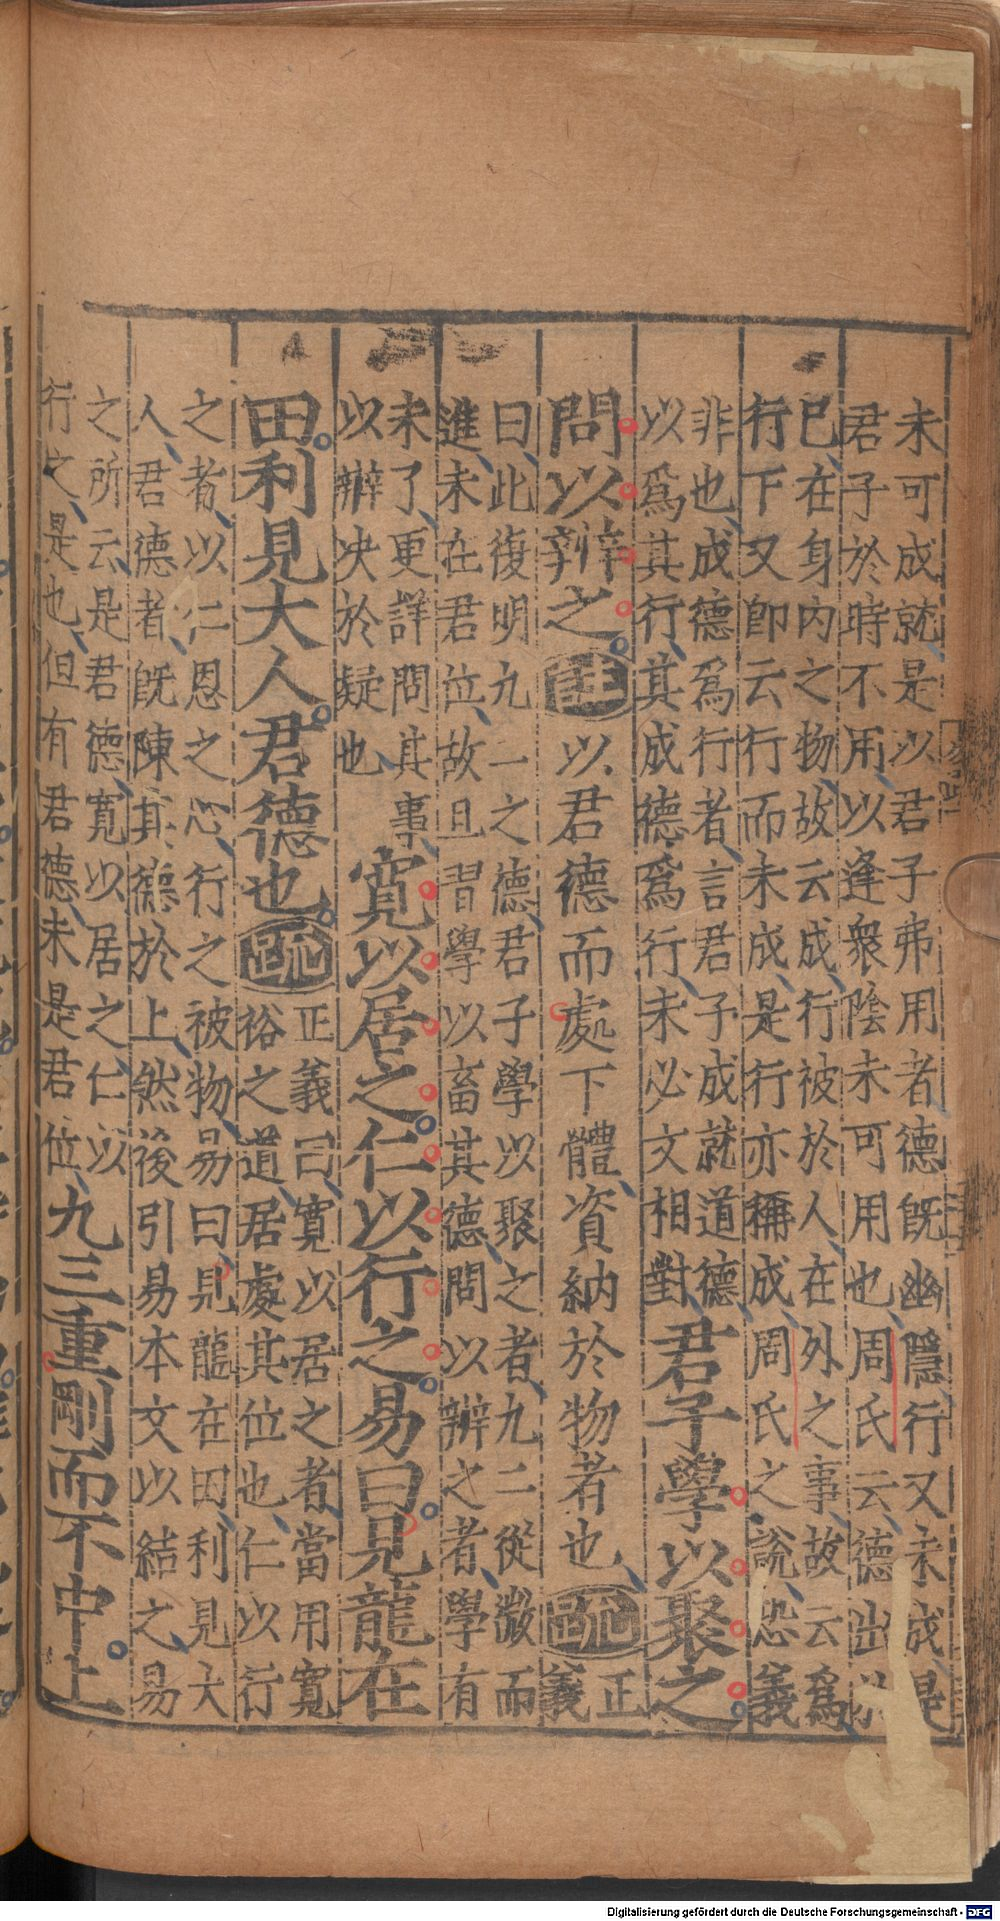 未可成就是以君子弗用者德旣幽隱行又未成是
君子於時不用以逢衆陰未可用也周氏云德出於
已在身内之物故云成行被於人在外之事故云爲
行下又即云行而未成是行亦稱成周氏之說恐義
非也成德爲行者言君子成就道德
以爲其行其成德爲行未必文相對
君子學以聚之
問以辯之
註
以君德而處下體資納於物者也
疏
正
義
曰此復明九二之德君子學以聚之者九二從微而
進未在君位故且習學以畜其德問以辯之者學有
未了更詳問其事
以辯决於疑也
寬以居之仁以行之易曰見龍在
田利見大人君德也
疏
正義曰寬以居之者當用寬
裕之道居處其位也仁以行
之者以仁恩之心行之被物易曰見龍在田利見大
人君德者旣陳其德於上然後引易本文以結之易
之所云是君德寬以居之仁以
行之是也但有君德未是君位
九三重剛而不中上
Digitalisierung gefördert durch die Deutsche Forschungsgemeinschaft - DFG